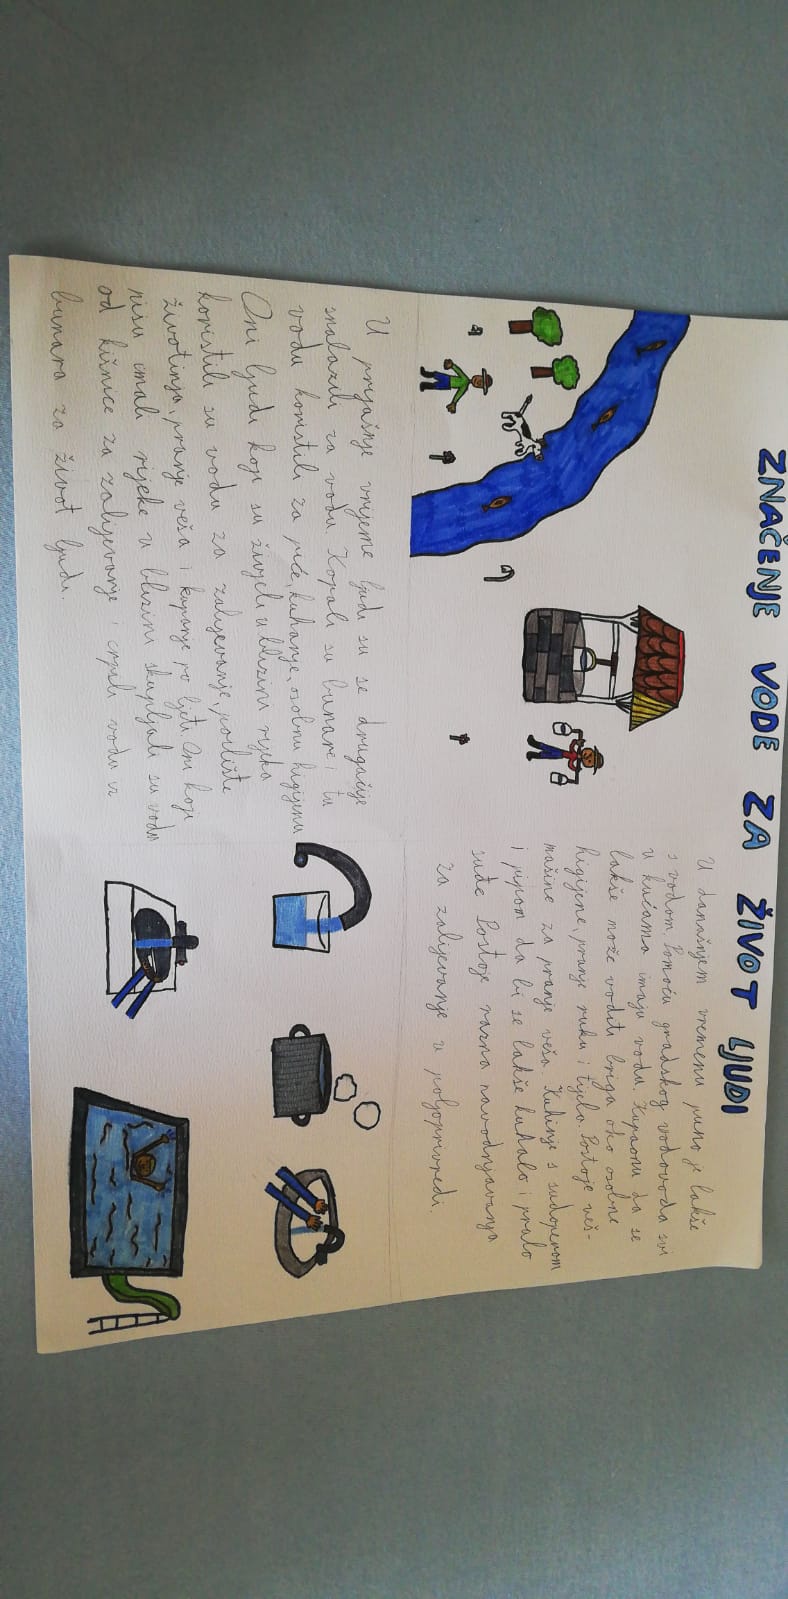 ZNAČENJE VODE ZA ŽIVOT LJUDI
U prijašnje vrijeme ljudi su se drugačije
snalazili za vodu. Kopali su bunare i tu
vodu koristili za piće, kuhanje, osobnu higijenu
Oni ljudi koji su živjeli u blizini rijeka
koristili su vodu za zalijevanje, pojilište
životinja, pranje veša i kupanje po ljeti. Oni koji
nisu imali rijeke u blizini skupljali su vodu
od kišnice za zalijevanje i crpili vodu iz
bunara za život ljudi.
U današnjem vremenu puno je lakše
s vodom. Pomoću gradskog vodovoda svi
u kućama imaju vodu. Kupaonu da se
lakše može voditi briga oko osobne
higijene, pranje ruku i tijela. Postoje veš-
mašine za pranje veša. Kuhinje s sudoperom
i pipom da bi se lakše kuhalo i pralo
suđe. Postoje razna navodnjavanja
za zalijevanje u poljoprivredi.